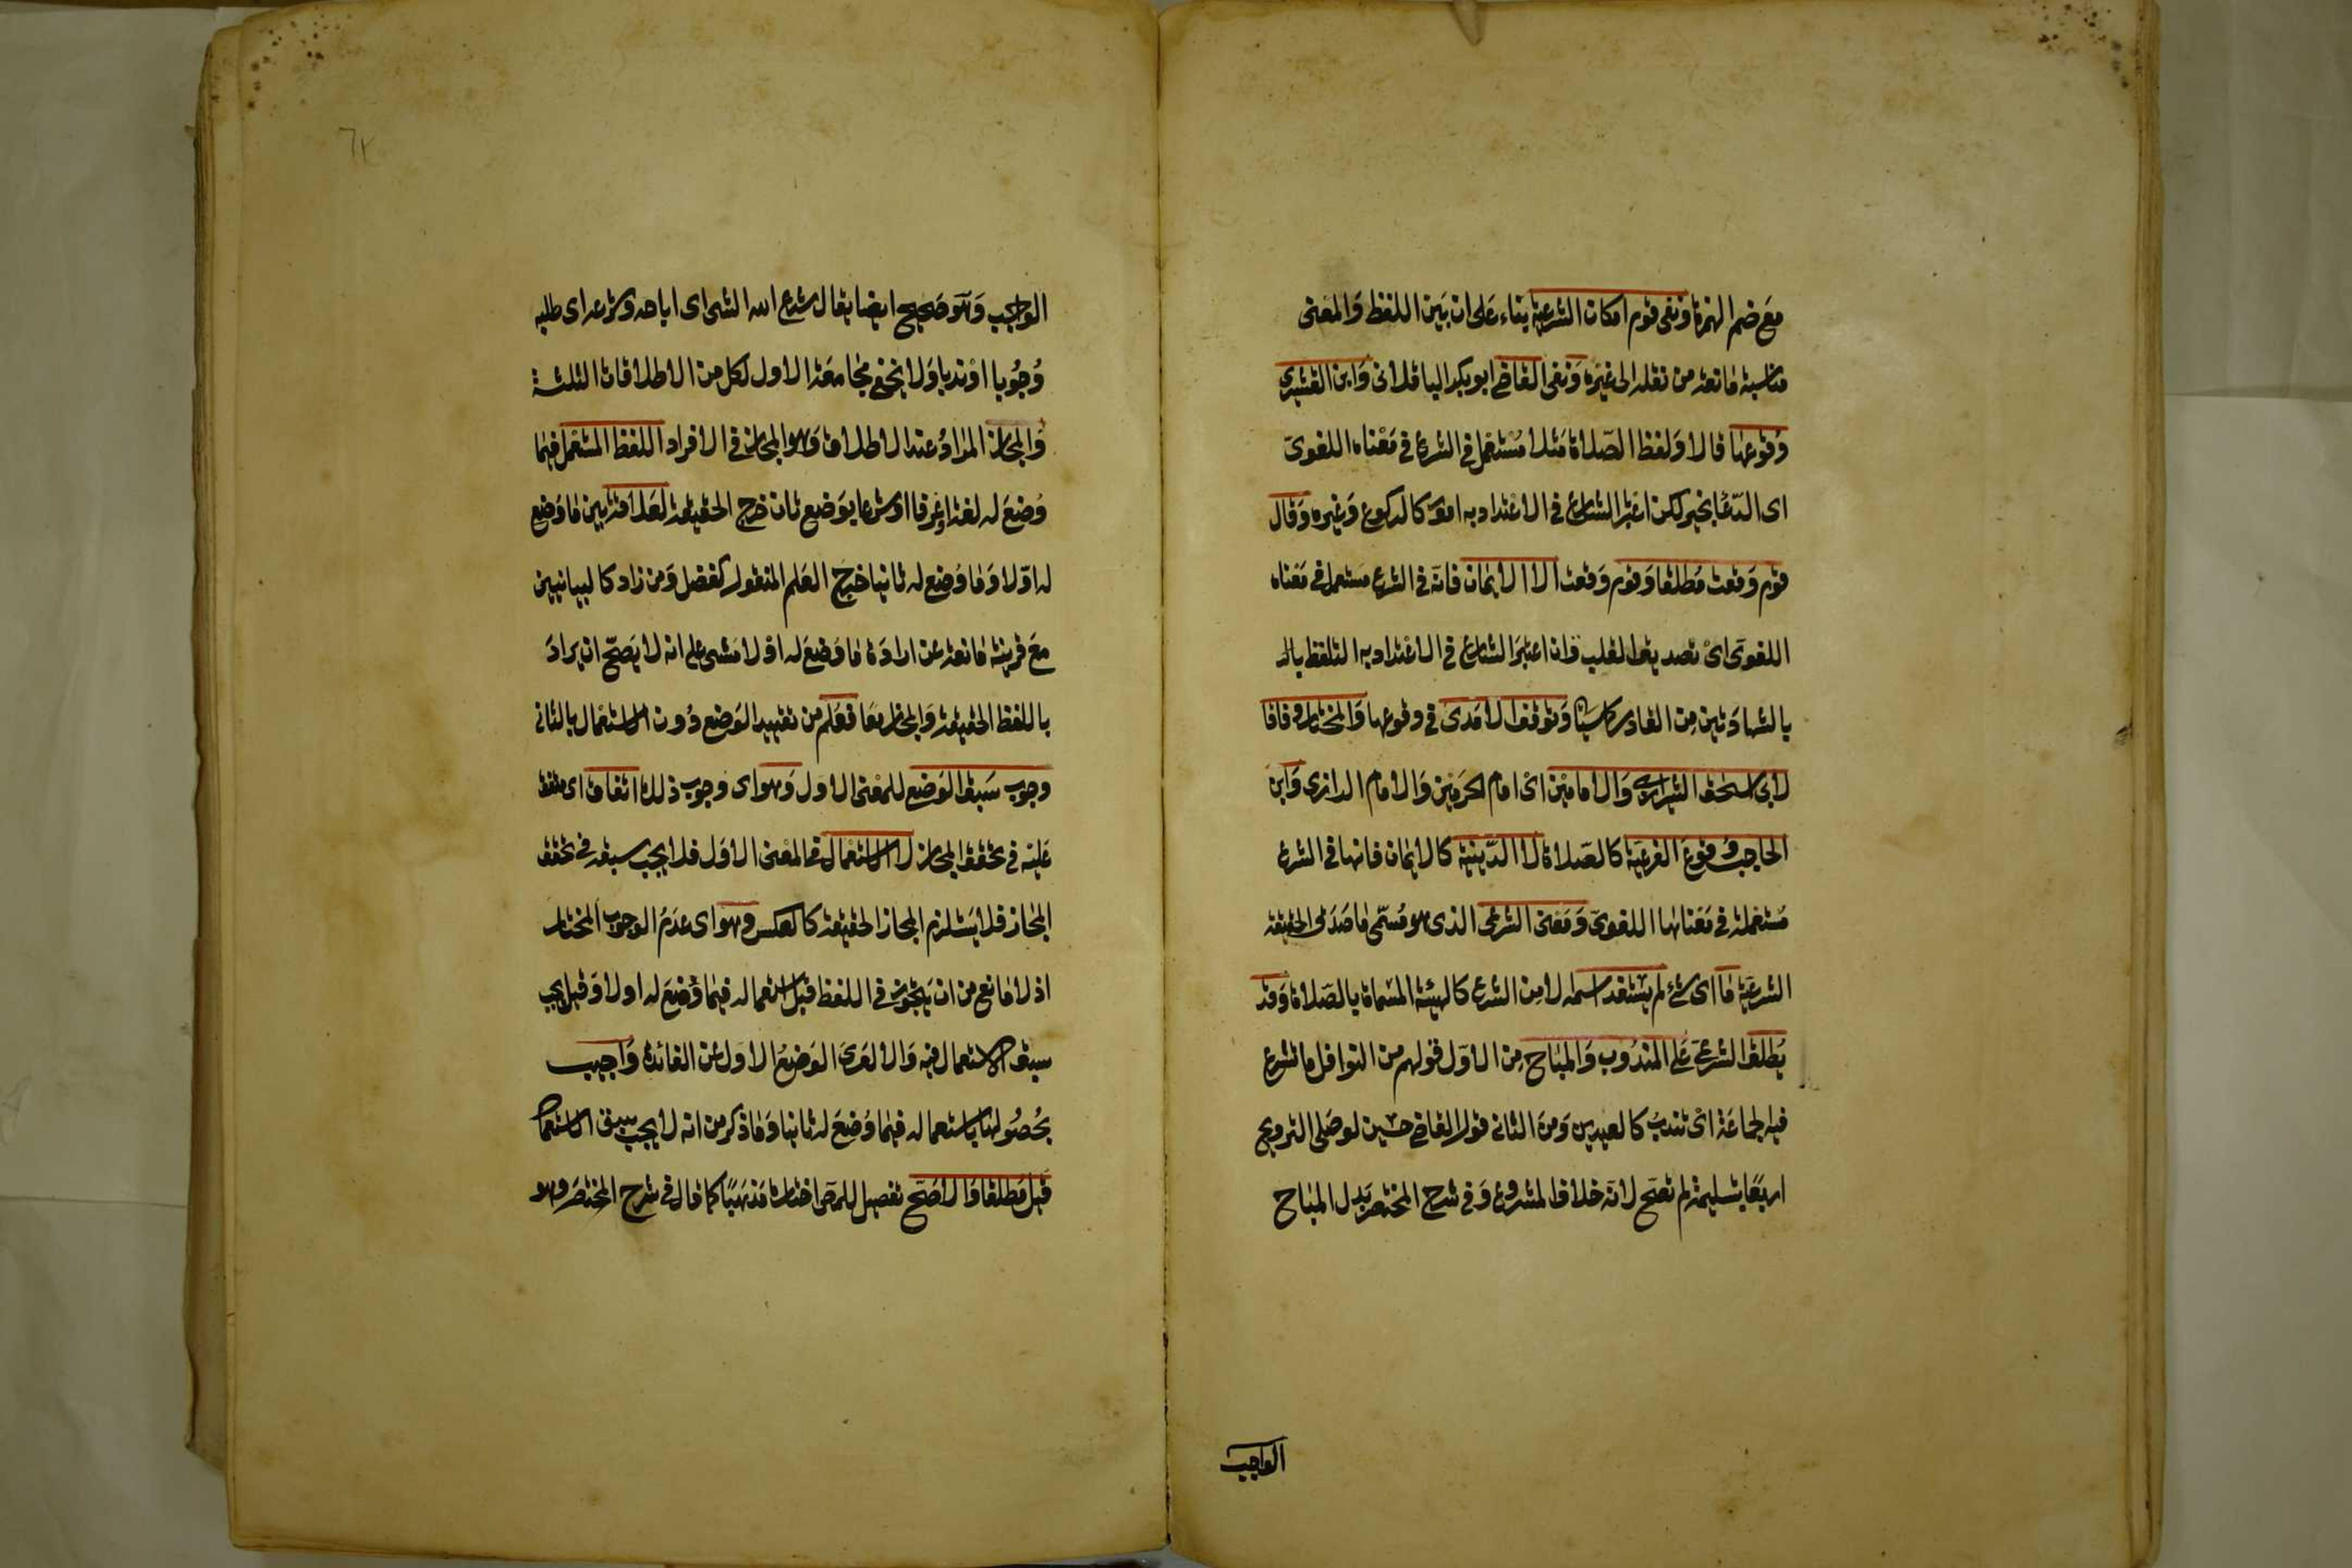 مع ضم الهمزة ونفى قوم امكان الشرعية بناء على ان بين اللفظ والمعنى
مناسبة مانعة من نقله الى غيره ونفى القاضى ابو بكر الباقلانى وابن القشيرى
وقوعها قالا ولفظ الصلاة مثلا مستعمل في الشرع في معناه اللغوى
اى الدعا بخير لكن اعتبر الشارع في الاعتداد به امورا كالركوع وغيره وقال
قوم وقعت مطلقا وقوم وقعت الا الايمان فانه في الشرع مستعمل في معناه
اللغوى اى تصديق القلب وان اعتبر الشارع في الاعتداد به التلفظ بال
بالشهادتين من القادر كما سيأتى وتوقف الامدى في وقوعها والمختار وفاقا
لابى اسحق الشيرازى والامامين اى امام الحرمين والامام الرازى وابن
الحاجب وقوع الفرعية كالصلاة لا الدينية كالايمان فانها في الشرع
مستعملة في معناها اللغوى ومعنى الشرعى الذى هو مسمى ما صدق الحقيقة
الشرعية ما اى شئ لم يستفد اسمه الا من الشرع كالهيئة المسماة بالصلاة وقد
يطلق الشرعى على المندوب والمباح من الاول قولهم من النوافل ما تشرع
فيه الجماعة اى تندب كالعيدين ومن الثانى قول القاضى حسين لو صلى الترويح
اربعا بتسليمة لم تصح لانه خلاف المشروع وفى شرح المختصر بدل المباح
الواجب
الواجب وهو صحيح ايضا يقال شرع الله الشى اى اباحه وشرعه اى طلبه
وجوبا او ندبا ولا يخفى مجامعة الاول لكل من الاطلاقات الثلثة
والمجاز المراد عند الاطلاق وهو المجاز في الافراد اللفظ المستعمل فيما
وضع له لغة او عرفا او شرعا بوضع ثان خرج الحقيقة لعلاقة بين ما وضع
له اولا وما وضع له ثانيا خرج العلم المنقول كفضل ومن زاد كالبيانيين
مع قرينة مانعة عن ارادة ما وضع له اولا مشى على انه لا يصح ان يراد
باللفظ الحقيقة والمجاز معا فعلم من تقييد الوضع دون الاستعمال بالثانى
وجوب سبق الوضع للمعنى الاول وهو اى وجوب ذلك اتفاق اى متفق
عليه في تحقق المجاز لا الاستعمال في المعنى الاول فلا يجب سبقه في تحقق
المجاز فلا يستلزم المجاز الحقيقة كالعكس وهو اى عدم الوجوب المختار
اذ لا مانع من ان يتجوز في اللفظ قبل استعماله فيما وضع له اولا وقيل يجب
سبق الاستعمال فيه والا لعرى الوضع الاول عن الفائدة واجيب
بحصولها باستعماله فيما وضع له ثانيا وما ذكر من انه لا يجب سبق الاستعمال
قيل مطلقا والاصح تفصيل للمص اختاره مذهبا كما قال في شرح المختصر وهو